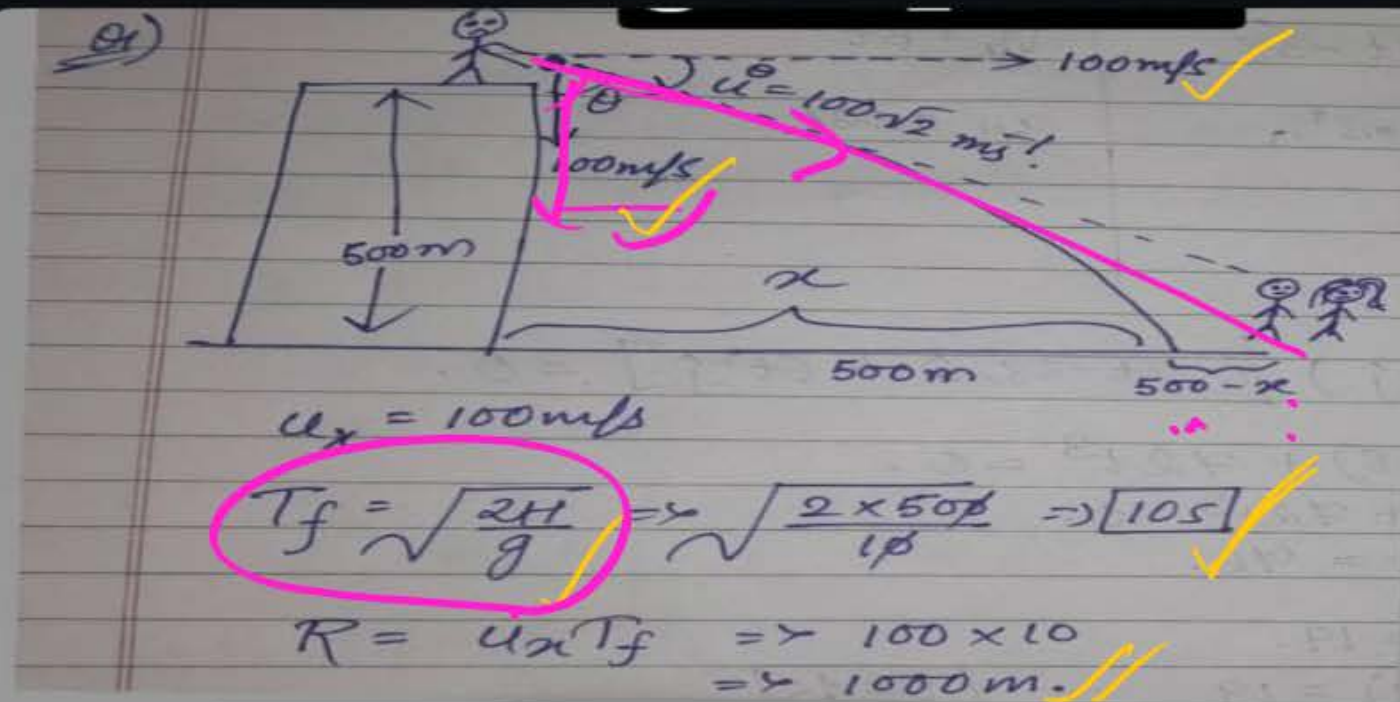 Q1)
100m/s
θ
u = 100√2 ms⁻¹
θ
100m/s
500m
x
500m
500-x
u_x = 100m/s
T_f = √(2H/g) => √(2×500/10) => 10s
R = u_x T_f => 100 × 10
=> 1000m.